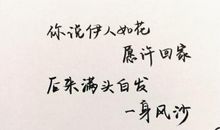 你说伊人如花
愿许回家
后来满头白发
一身风沙